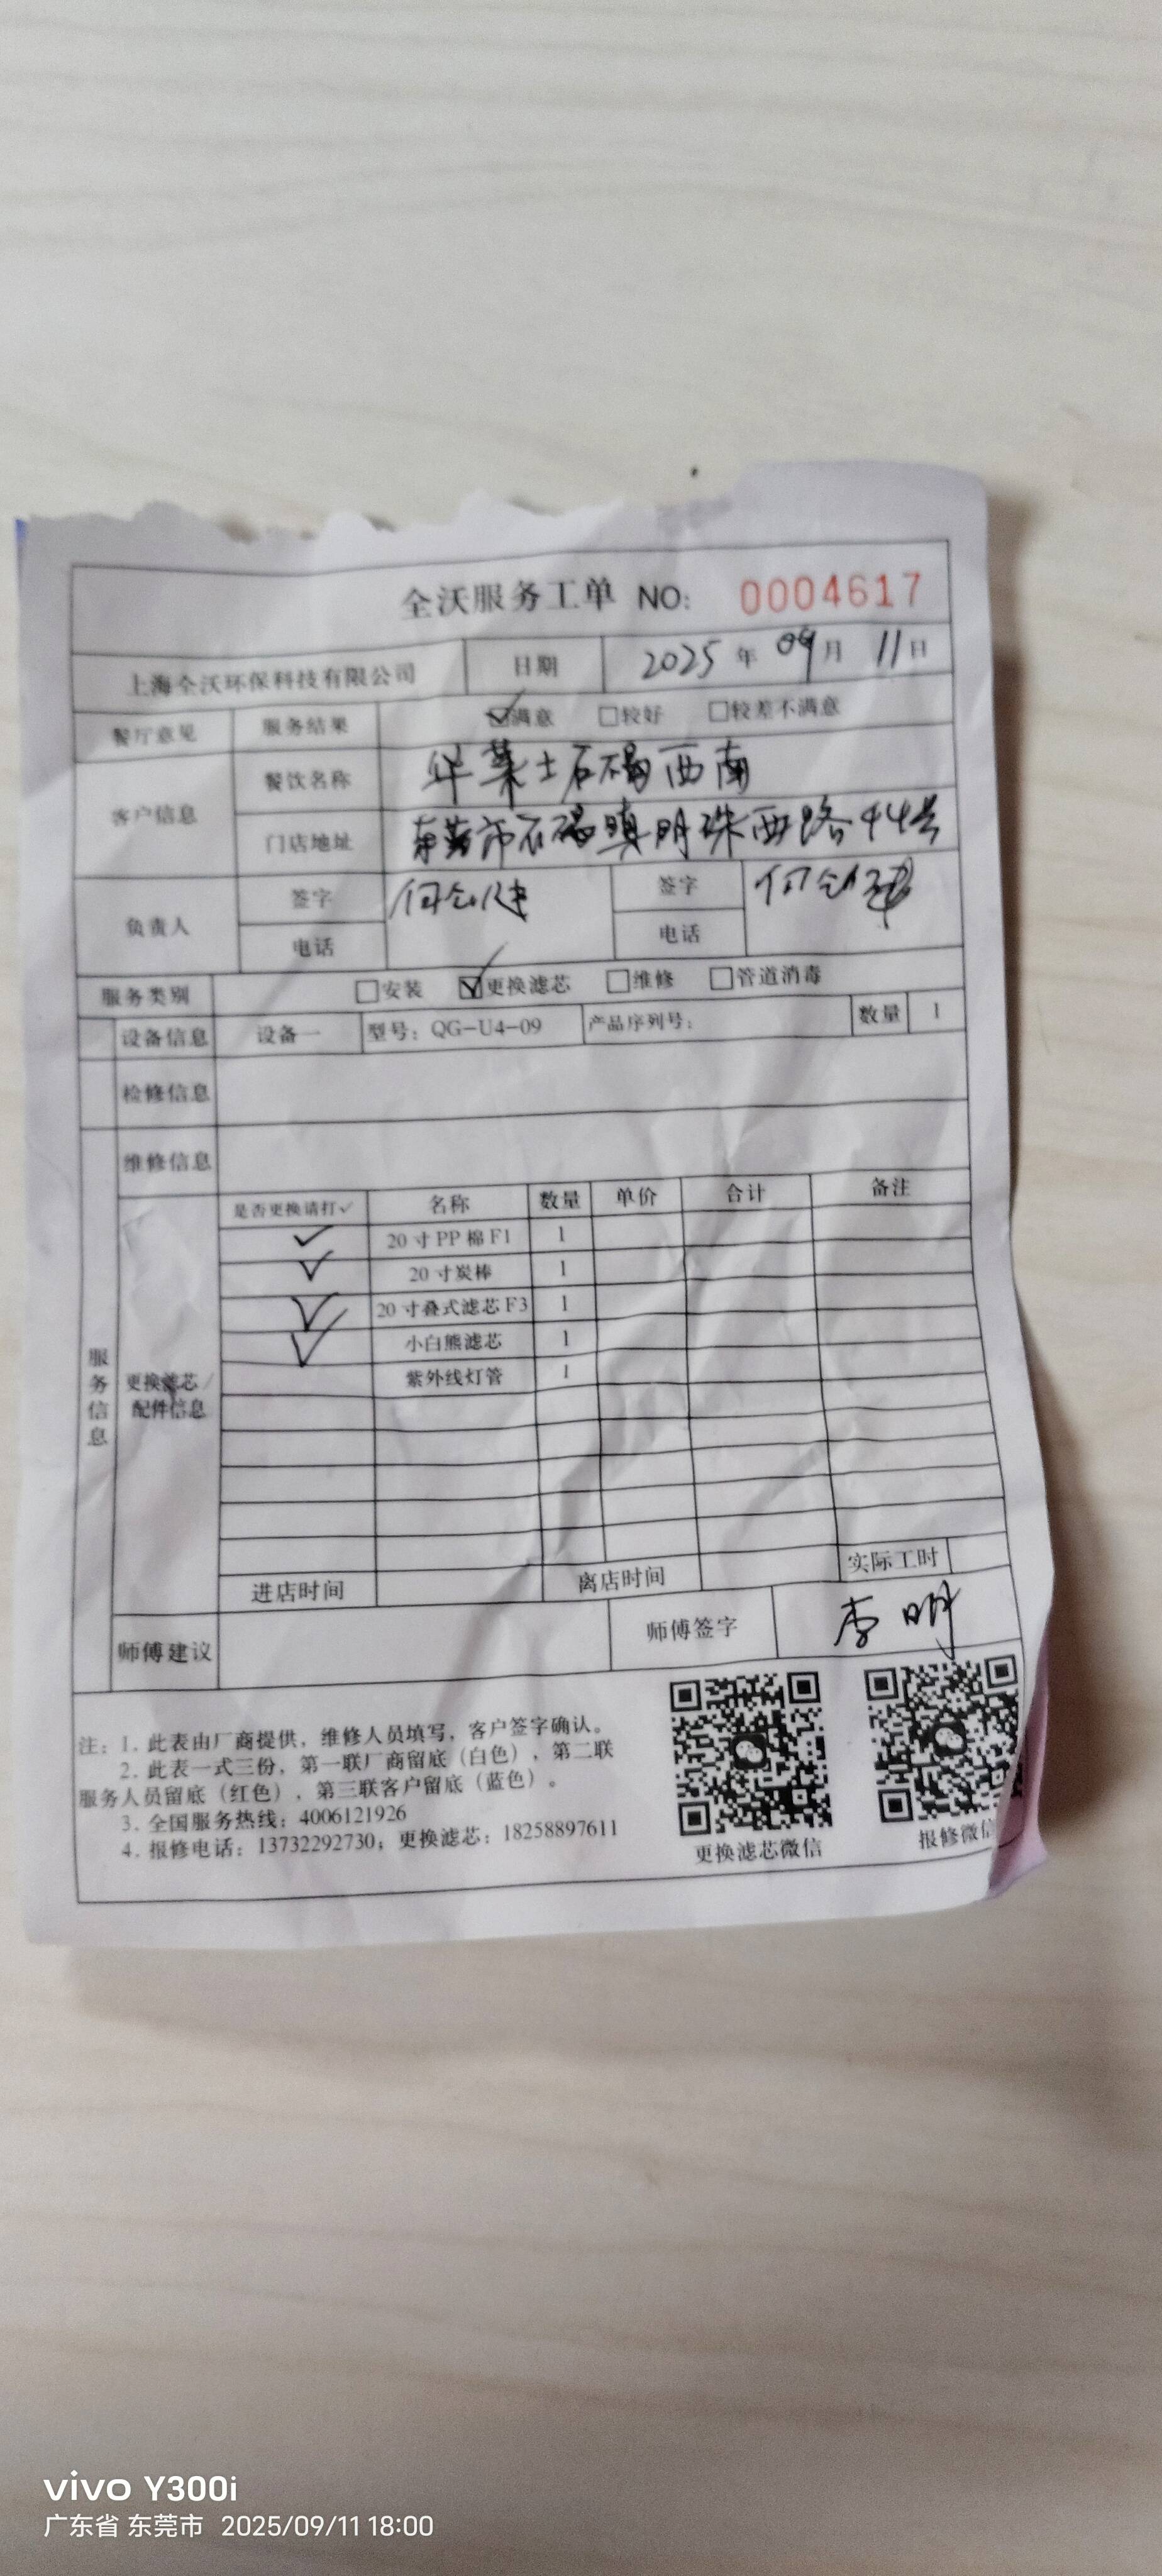 全沃服务工单 NO: 0004617
上海全沃环保科技有限公司 日期 2025年 09月 11日
餐厅意见 服务结果 ☑满意 □较好 □较差不满意
客户信息 餐饮名称 华莱士石碣西南
门店地址 东莞市石碣镇明珠西路44号
负责人 签字 签字
电话 电话
服务类别 □安装 ☑更换滤芯 □维修 □管道消毒
设备信息 设备一 型号: QG-U4-09 产品序列号: 数量 1
检修信息
维修信息
服务信息
更换滤芯/
配件信息
是否更换请打✓ 名称 数量 单价 合计 备注
✓ 20寸PP棉F1 1
✓ 20寸炭棒 1
✓ 20寸叠式滤芯F3 1
✓ 小白熊滤芯 1
紫外线灯管 1
进店时间 离店时间 实际工时
师傅建议 师傅签字 李明
注: 1. 此表由厂商提供, 维修人员填写, 客户签字确认。
2. 此表一式三份, 第一联厂商留底(白色), 第二联
服务人员留底(红色), 第三联客户留底(蓝色)。
3. 全国服务热线: 4006121926
4. 报修电话: 13732292730; 更换滤芯: 18258897611
更换滤芯微信 报修微信
vivo Y300i
广东省 东莞市 2025/09/11 18:00